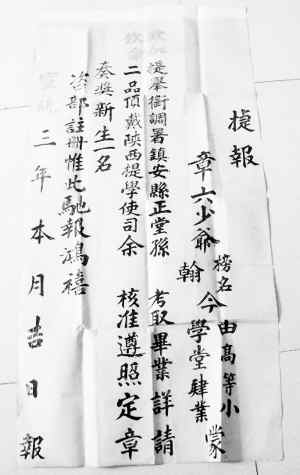 捷報
章六少爺榜名翰今由高等小學堂肄業蒙
提舉銜調署鎮安縣正堂孫 考取畢業詳請
二品頂戴陝西提學使司余 核准遵照定章
奏獎新生一名
咨部註冊惟此馳報鴻禧
宣統三年本月吉日報